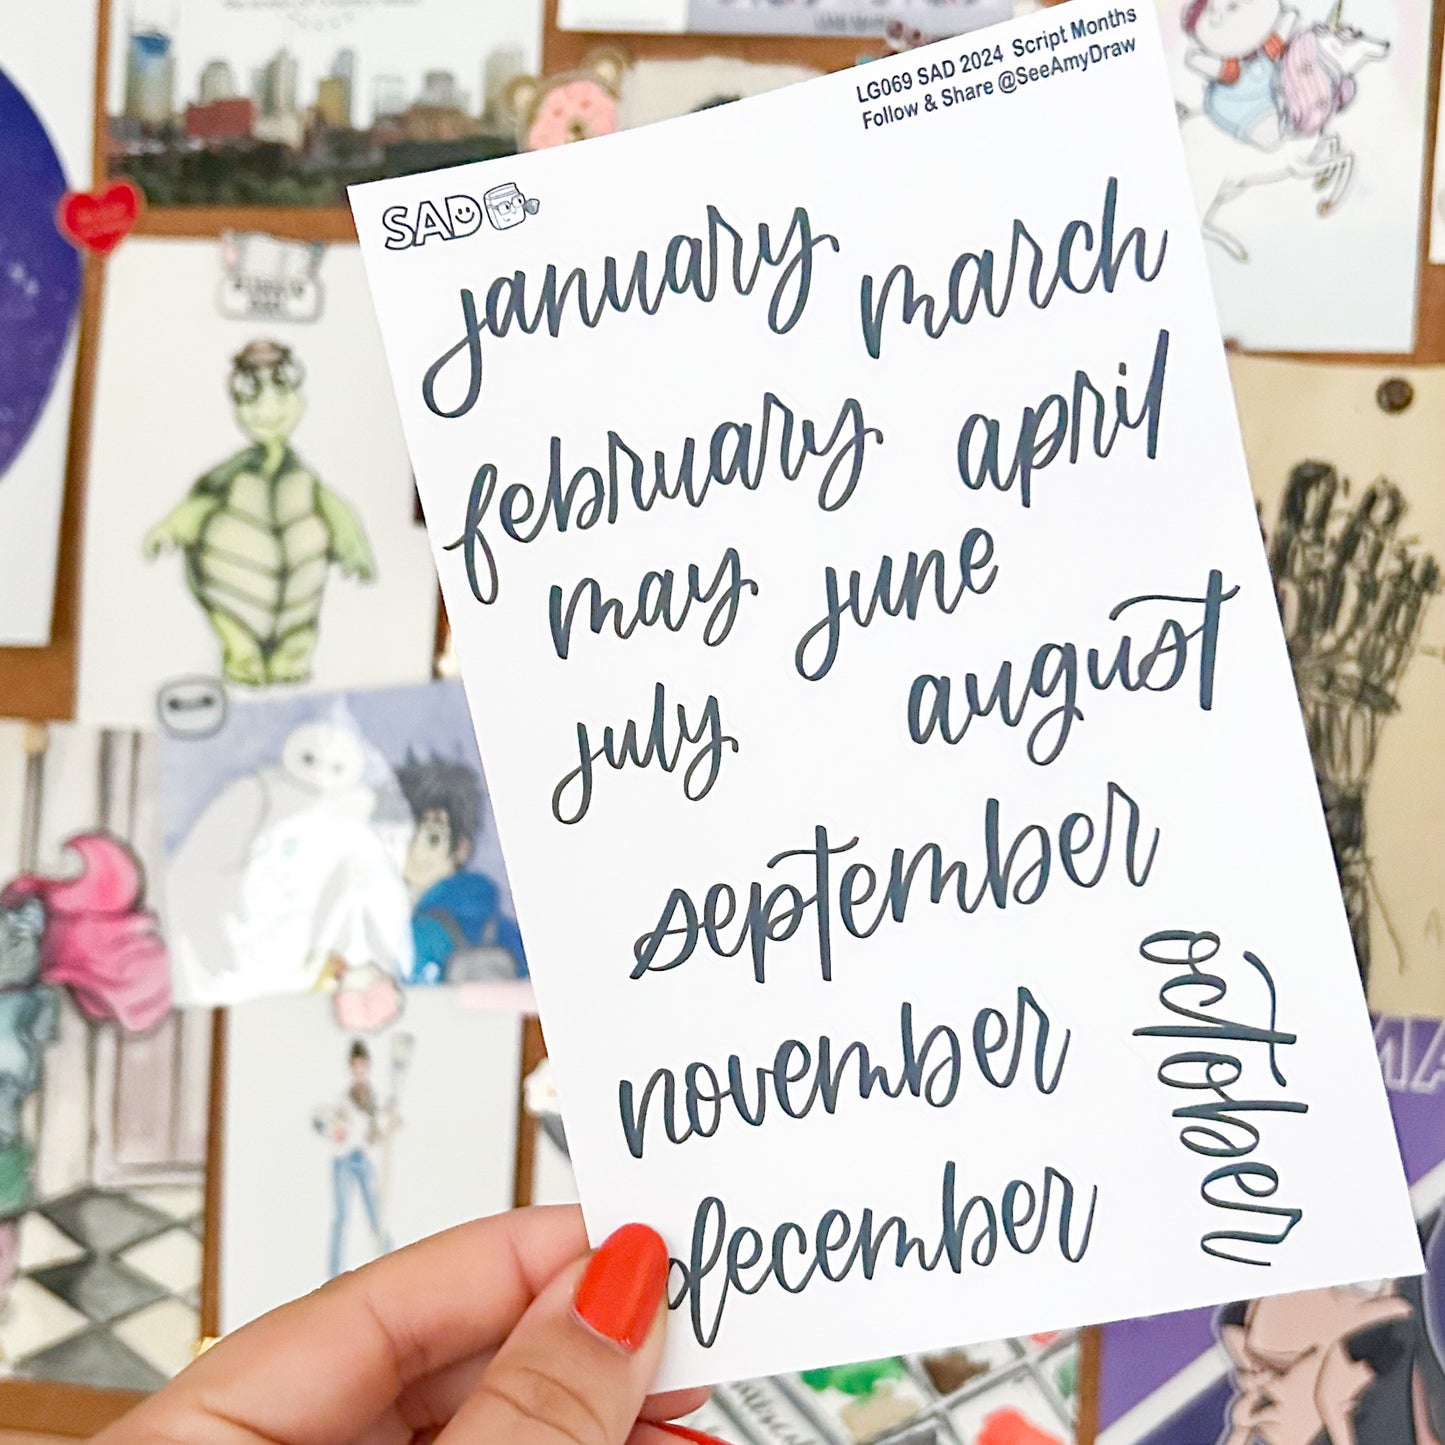 LG069 SAD 2024 Script Months
Follow & Share @SeeAmyDraw
SAD
january
march
february
april
may
june
july
august
september
october
november
december